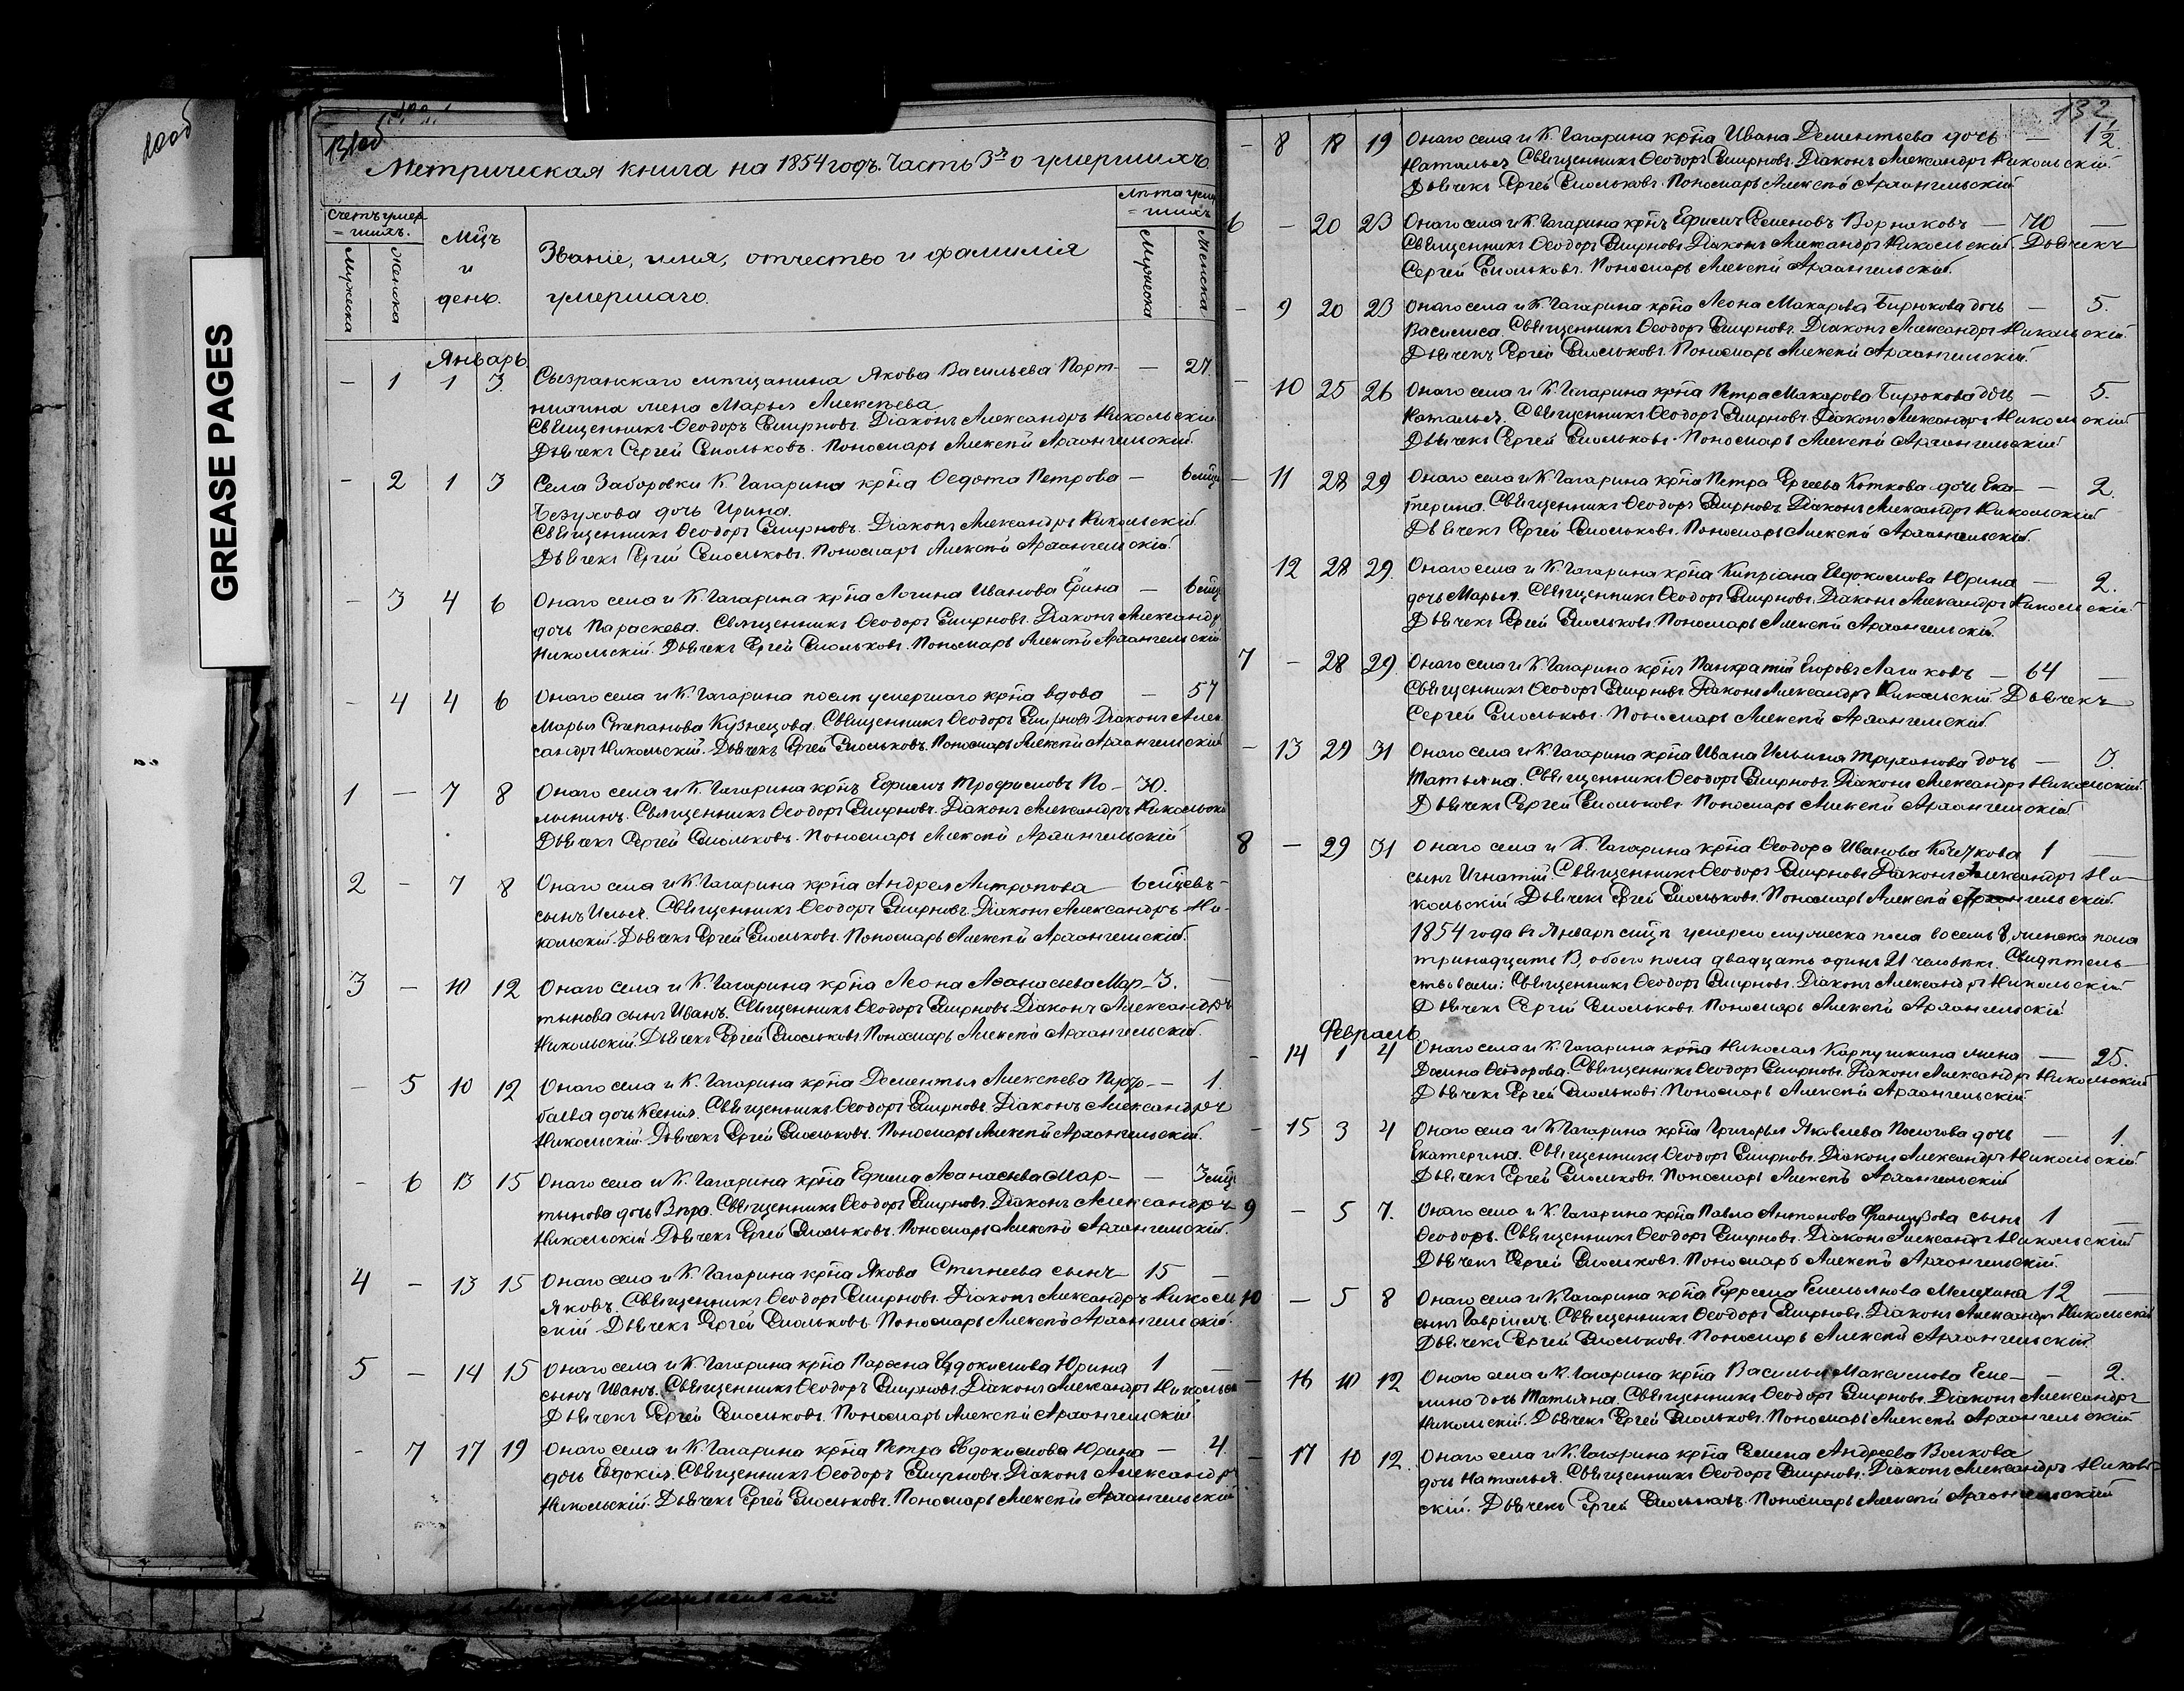 GREASE PAGES
Метрическая книга на 1854 годъ. Часть 3я о умершихъ.
Счетъ умер
=шихъ.
Мужеска
Женска
Мцъ
и
день.
Званіе, имя, отчество и фамилія
умершаго.
Лѣта умер
=шихъ
Мужеска
Женска
Январь
— 1 1 3 Сызранскаго мѣщанина Якова Васильева Порт- — 27.
жена Марья Алексѣева
Священникъ Ѳеодоръ Смирновъ. Діаконъ Александръ Никольскій
Дьячекъ Сергей Смольковъ. Пономарь Алексѣй Архангельскій.
— 2 1 3 Села Заборовки К. Гагарина крна Ѳедота Петрова — 6 мцъ
Безухова дочь Ирина.
Священникъ Ѳеодоръ Смирновъ. Діаконъ Александръ Никольскій.
Дьячекъ Сергей Смольковъ. Пономарь Алексѣй Архангельскій.
— 3 4 6 Онаго села и К. Гагарина крна Логина Иванова Ёрина — 6 мцъ
дочь Параскева. Священникъ Ѳеодоръ Смирновъ. Діаконъ Александръ
Никольскій. Дьячекъ Сергей Смольковъ. Пономарь Алексѣй Архангельскій
— 4 4 6 Онаго села и К. Гагарина послѣ умершаго крна вдова — 57
Марья Степанова Кузнецова. Священникъ Ѳеодоръ Смирновъ Діаконъ Алек-
сандръ Никольскій. Дьячекъ Сергей Смольковъ. Пономарь Алексѣй Архангельскій
1 — 7 8 Онаго села и К. Гагарина крнъ Ефимъ Трофимовъ По- 30.
лынинъ. Священникъ Ѳеодоръ Смирновъ. Діаконъ Александръ Никольскій
Дьячекъ Сергей Смольковъ. Пономарь Алексѣй Архангельскій
2 — 7 8 Онаго села и К. Гагарина крна Андрея Антропова 6 мцевъ —
сынъ Илья. Священникъ Ѳеодоръ Смирновъ. Діаконъ Александръ Ни-
кольскій. Дьячекъ Сергей Смольковъ. Пономарь Алексѣй Архангельскій.
3 — 10 12 Онаго села и К. Гагарина крна Леона Аѳанасьева Мар- 3. —
тынова сынъ Иванъ. Священникъ Ѳеодоръ Смирновъ Діаконъ Александръ
Никольскій. Дьячекъ Сергей Смольковъ. Пономарь Алексѣй Архангельскій.
— 5 10 12 Онаго села и К. Гагарина крна Дементья Алексѣева — 1.
дочь Ксенія. Священникъ Ѳеодоръ Смирновъ. Діаконъ Александръ
Никольскій. Дьячекъ Сергей Смольковъ. Пономарь Алексѣй Архангельскій.
— 6 13 15 Онаго села и К. Гагарина крна Ефима Аѳанасьева Мар- — 3 мцъ
тынова дочь Вѣра. Священникъ Ѳеодоръ Смирновъ. Діаконъ Александръ
Никольскій. Дьячекъ Сергей Смольковъ. Пономарь Алексѣй Архангельскій.
4 — 13 15 Онаго села и К. Гагарина крна Якова Стегнеева сынъ 15 —
Яковъ. Священникъ Ѳеодоръ Смирновъ. Діаконъ Александръ Николь
скій Дьячекъ Сергей Смольковъ. Пономарь Алексѣй Архангельскій.
5 — 14 15 Онаго села и К. Гагарина крна Парѳена Евдокимова Юрина 1 —
сынъ Иванъ. Священникъ Ѳеодоръ Смирновъ. Діаконъ Александръ Никольскій
Дьячекъ Сергей Смольковъ. Пономарь Алексѣй Архангельскій
— 7 17 19 Онаго села и К. Гагарина крна Петра Евдокимова Юрина — 4.
дочь Евдокія. Священникъ Ѳеодоръ Смирновъ. Діаконъ Александръ
Никольскій. Дьячекъ Сергей Смольковъ. Пономарь Алексѣй Архангельскій
132
— 8 18 19 Онаго села и К. Гагарина крна Ивана Дементьева дочь — 1½
Наталья. Священникъ Ѳеодоръ Смирновъ. Діаконъ Александръ Никольскій.
Дьячекъ Сергей Смольковъ. Пономарь Алексѣй Архангельскій
6 — 20 23 Онаго села и К. Гагарина крнъ Ефимъ Семеновъ Ворнаковъ — 70 —
Священникъ Ѳеодоръ Смирновъ. Діаконъ Александръ Никольскій. Дьячекъ
Сергей Смольковъ. Пономарь Алексѣй Архангельскій.
— 9 20 23 Онаго села и К. Гагарина крна Леона Макарова Бирюкова дочь — 5.
Василиса. Священникъ Ѳеодоръ Смирновъ. Діаконъ Александръ Никольскій.
Дьячекъ Сергей Смольковъ. Пономарь Алексѣй Архангельскій.
— 10 25 26 Онаго села и К. Гагарина крна Петра Макарова Бирюкова дочь — 5.
Наталья. Священникъ Ѳеодоръ Смирновъ. Діаконъ Александръ Никольскій
Дьячекъ Сергей Смольковъ. Пономарь Алексѣй Архангельскій
— 11 28 29 Онаго села и К. Гагарина крна Петра Сергеева Коткова дочь Ека- — 2.
терина. Священникъ Ѳеодоръ Смирновъ Діаконъ Александръ Никольскій
Дьячекъ Сергей Смольковъ. Пономарь Алексѣй Архангельскій.
12 28 29. Онаго села и К. Гагарина крна Кипріана Евдокимова Юрина — 2.
дочь Марья. Священникъ Ѳеодоръ Смирновъ. Діаконъ Александръ Никольскій.
Дьячекъ Сергей Смольковъ. Пономарь Алексѣй Архангельскій.
7 — 28 29. Онаго села и К. Гагарина крнъ Панкратій Егоровъ Лагиковъ — 64 —
Священникъ Ѳеодоръ Смирновъ Діаконъ Александръ Никольскій. Дьячекъ
Сергей Смольковъ. Пономарь Алексѣй Архангельскій
— 13 29 31 Онаго села и К. Гагарина крна Ивана Ильина Труханова дочь — 3.
Татьяна. Священникъ Ѳеодоръ Смирновъ. Діаконъ Александръ Никольскій.
Дьячекъ Сергей Смольковъ. Пономарь Алексѣй Архангельскій
8 — 29 31 Онаго села и К. Гагарина крна Ѳеодора Иванова 1 —
сынъ Игнатій. Священникъ Ѳеодоръ Смирновъ Діаконъ Александръ Ни-
кольскій Дьячекъ Сергей Смольковъ. Пономарь Алексѣй Архангельскій
1854 года въ Январѣ мцѣ умерло мужеска пола восемь 8, женска пола
тринадцать 13, обоего пола двадцать одинъ 21 человѣкъ. Свидѣтель-
ствовали: Священникъ Ѳеодоръ Смирновъ. Діаконъ Александръ Никольскій
Дьячекъ Сергей Смольковъ. Пономарь Алексѣй Архангельскій
Февраль
— 14 1 4 Онаго села и К. Гагарина крна Николая Карпушкина жена — 25.
Домна Ѳеодорова. Священникъ Ѳеодоръ Смирновъ. Діаконъ Александръ Никольскій
Дьячекъ Сергей Смольковъ. Пономарь Алексѣй Архангельскій.
— 15 3 4 Онаго села и К. Гагарина крна Григорья Яковлева дочь — 1.
Екатерина. Священникъ Ѳеодоръ Смирновъ. Діаконъ Александръ Никольскій.
Дьячекъ Сергей Смольковъ. Пономарь Алексѣй Архангельскій
9 — 5 7. Онаго села и К. Гагарина крна Павла Антонова сынъ 1 —
Ѳеодоръ. Священникъ Ѳеодоръ Смирновъ. Діаконъ Александръ Никольскій
Дьячекъ Сергей Смольковъ. Пономарь Алексѣй Архангельскій.
10 — 5 8 Онаго села и К. Гагарина крна Ефрема Емельянова 12 —
сынъ Гавріилъ. Священникъ Ѳеодоръ Смирновъ. Діаконъ Александръ Никольскій
Дьячекъ Сергей Смольковъ. Пономарь Алексѣй Архангельскій.
— 16 10 12 Онаго села и К. Гагарина крна Василья Максимова Еме- — 2.
лина дочь Татьяна. Священникъ Ѳеодоръ Смирновъ. Діаконъ Александръ
Никольскій. Дьячекъ Сергей Смольковъ. Пономарь Алексѣй Архангельскій
— 17 10 12. Онаго села и К. Гагарина крна Семена Андреева Волкова
дочь Наталья. Священникъ Ѳеодоръ Смирновъ. Діаконъ Александръ Николь-
скій. Дьячекъ Сергей Смольковъ. Пономарь Алексѣй Архангельскій